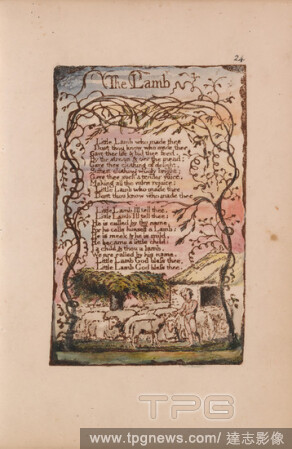 24
The Lamb
Little Lamb who made thee
Dost thou know who made thee
Gave thee life & bid thee feed.
By the stream & o'er the mead;
Gave thee clothing of delight,
Softest clothing wooly bright;
Gave thee such a tender voice,
Making all the vales rejoice:
Little Lamb who made thee
Dost thou know who made thee
Little Lamb I'll tell thee,
Little Lamb I'll tell thee;
He is called by thy name,
For he calls himself a Lamb:
He is meek & he is mild,
He became a little child:
I a child & thou a lamb,
We are called by his name.
Little Lamb God bless thee.
Little Lamb God bless thee.
TPG
www.tpgnews.com/達志影像